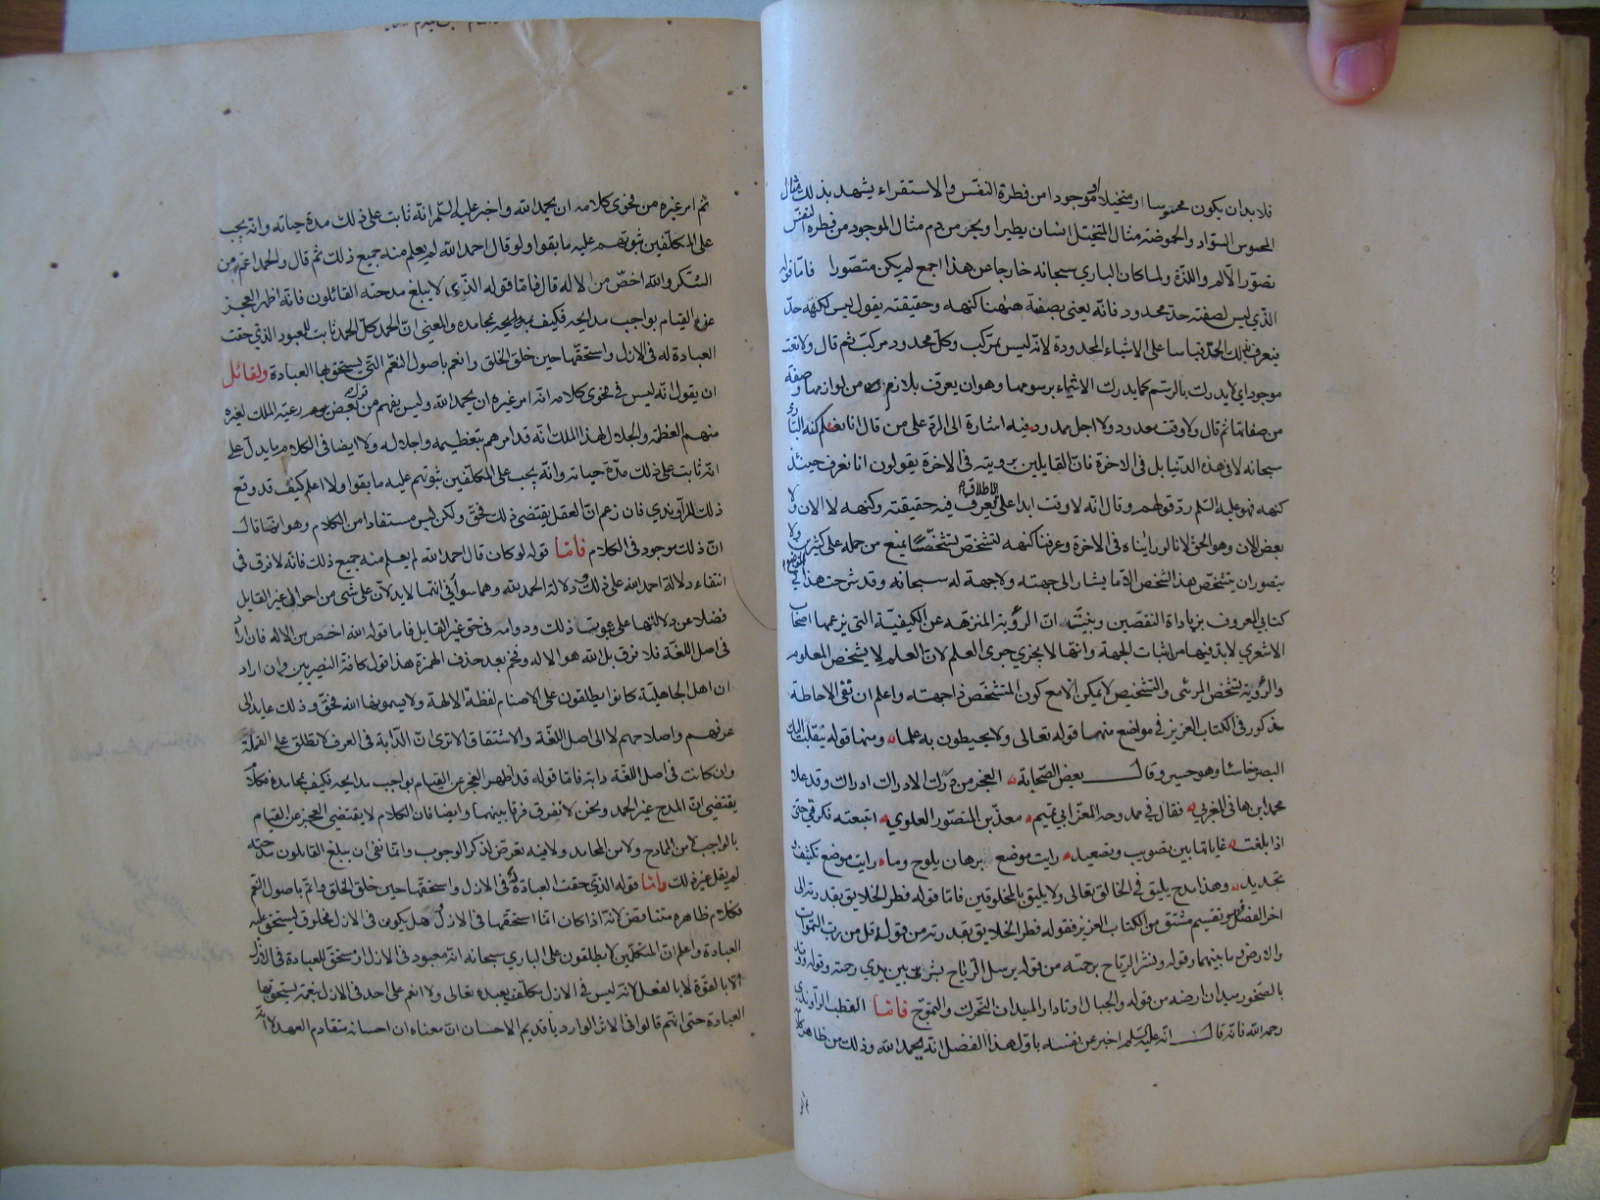 فلا بد ان يكون محسوسا او متخيلا او موجودا من فطرة النفس والاستقراء يشهد بذلك مثال
المحسوس السواد والحموضة مثال المتخيل انسان يطير او بحر من دم مثال الموجود من فطرة النفس
تصور الالم واللذة ولما كان الباري سبحانه خارجا عن هذا اجمع لم يكن متصورا فاما قوله
الذي ليس لصفته حد محدود فانه يعني بصفته هاهنا كنهه وحقيقته يقول ليس لكنهه حد
فيعرف بذلك الحد قياسا على الاشياء المحدودة لانه ليس بمركب وكل محدود مركب ثم قال ولا نعت
موجود اي لا يدرك بالرسم كما يدرك الاشياء برسومها وهو ان يعرف بلازم من لوازمها وصفة
من صفاتها ثم قال ولا وقت معدود ولا اجل ممدود فيه اشارة الى الرد على من قال انا نعلم كنه البارئ
سبحانه لا في هذه الدنيا بل في الاخرة فان القايلين برويته في الاخرة يقولون انا نعرف حينئذ
كنهه فهو عليه السلم رد قولهم وقال انه لا وقت ابدا على الاطلاق يعرف فيه حقيقته وكنهه لا الان ولا
بعض الان وهو الحق لانا لو رايناه في الاخرة وعرفنا كنهه لتشخص تشخصا يمنع من حمله على كثيرين ولا
يتصور ان يتشخص هذا التشخص الا ما يشار الى جهته ولا جهة له سبحانه وقد شرحت هذا الموضع في
كتابي المعروف بزيادات النقضين وبينت ان الرؤية المنزهة عن الكيفية التي يزعمها اصحاب
الاشعري لا بد فيها من اثبات الجهة وانها لا يجري مجرى العلم لان العلم لا يشخص المعلوم
والرؤية تشخص المرئي والتشخيص لا يمكن الا مع كون المتشخص ذا جهة واعلم ان نفي الاحاطة
مذكور في الكتاب العزيز في مواضع منها قوله تعالى ولا يحيطون به علما ومنها قوله ينقلب اليك
البصر خاسئا وهو حسير وقال بعض الصحابة العجز من درك الادراك ادراك وقد غلا
محمد ابن هاني المغربي فقال في ممدوحه المعز ابي تميم معد بن المنصور العلوي اتبعته فكري حتى
اذا بلغت غاياتها بين تصويب وتصعيد رايت موضع برهان يلوح وما رايت موضع تكييف و
تحديد وهذا مدح يليق في الخالق تعالى ولا يليق بالمخلوقين فاما قوله فطر الخلايق بقدرته الى
اخر الفصل فهو تقسيم مشتق من الكتاب العزيز فقوله فطر الخلايق بقدرته من قوله قل من رب السموات
والارض وما بينهما وقوله ونشر الرياح برحمته من قوله يرسل الرياح بشرا بين يدي رحمته وقوله ووتد
بالصخور ميدان ارضه من قوله والجبال اوتادا والميدان التحرك والتموج فاما القطب الراوندي
رحمه الله فانه قال انه عليه السلم اخبر عن نفسه باول هذا الفصل انه يحمد الله وذلك من ظاهر كلامه
ثم امر غيره من فحوى كلامه ان يحمد الله واخبر عليه السلم انه ثابت على ذلك مدة حياته وانه يجب
على المكلفين ثبوتهم عليه ما بقوا ولو قال احمد الله لم يعلم منه جميع ذلك ثم قال والحمد اعم من
الشكر والله اخص من الاله قال فاما قوله الذي لا يبلغ مدحته القائلون فانه اظهر العجز
عن القيام بواجب مدايحه فكيف بمحامده والمعنى ان الحمد كل الحمد ثابت للمعبود الذي حقت
العبادة له في الازل واستحقها حين خلق الخلق وانعم باصول النعم التي يستحق بها العبادة ولقائل
ان يقول انه ليس في فحوى كلامه انه امر غيره ان يحمد الله وليس يفهم من قول بعض رعية الملك لغيره
منهم العظمة والجلال لهذا الملك انه قد امرهم بتعظيمه واجلاله ولا ايضا في الكلام ما يدل على
انه ثابت على ذلك مدة حياته وانه يجب على المكلفين ثبوتهم عليه ما بقوا ولا اعلم كيف قد وقع
ذلك للراوندي فان زعم ان العقل يقتضي ذلك فحق ولكن ليس مستفادا من الكلام وهو انما قال
ان ذلك موجود في الكلام فاما قوله لو كان قال احمد الله لم يعلم منه جميع ذلك فانه لا فرق في
انتفاء دلالة احمد الله على ذلك ودلالة الحمد لله وهما سواء في انهما لا يدلان على شئ من احوال غير القايل
فضلا عن دلالتهما على ثبوت ذلك ودوامه في حق غير القايل فاما قوله الله اخص من الاله فان اراد
في اصل اللغة فلا فرق بل الله هو الاله وفخم بعد حذف الهمزة هذا قول كافة البصريين وان اراد
ان اهل الجاهلية كانوا يطلقون على الاصنام لفظة الالهة ولا يسمونها الله فحق وذلك عايد الى
عرفهم واصلاحهم لا الى اصل اللغة والاشتقاق الا ترى ان الدابة في العرف لا تطلق على القملة
وان كانت في اصل اللغة دابة فاما قوله قد اظهر العجز عن القيام بواجب مدايحه فكيف بمحامده فكلام
يقتضي ان المدح غير الحمد ونحن لا نعرف فرقا بينهما وايضا فان الكلام لا يقتضي العجز عن القيام
بالواجب لا من الممادح ولا من المحامد ولا فيه تعرض لذكر الوجوب وانما نفى ان يبلغ القائلون مدحته
لم يقل غير ذلك واما قوله الذي حقت العبادة له في الازل واستحقها حين خلق الخلق وانعم باصول النعم
فكلام ظاهره متناقض لانه اذا كان انما استحقها في الازل هل يكون في الازل مخلوق ليستحق عليه
العبادة واعلم ان المتكلمين لا يطلقون على الباري سبحانه انه معبود في الازل او مستحق للعبادة في الازل
الا بالقوة لا بالفعل لانه ليس في الازل مكلف يعبده تعالى ولا انعم على احد في الازل بنعمة يستحق بها
العبادة حتى انهم قالوا في الاثر الوارد يا قديم الاحسان ان معناه ان احسانه متقادم العهد لا انه